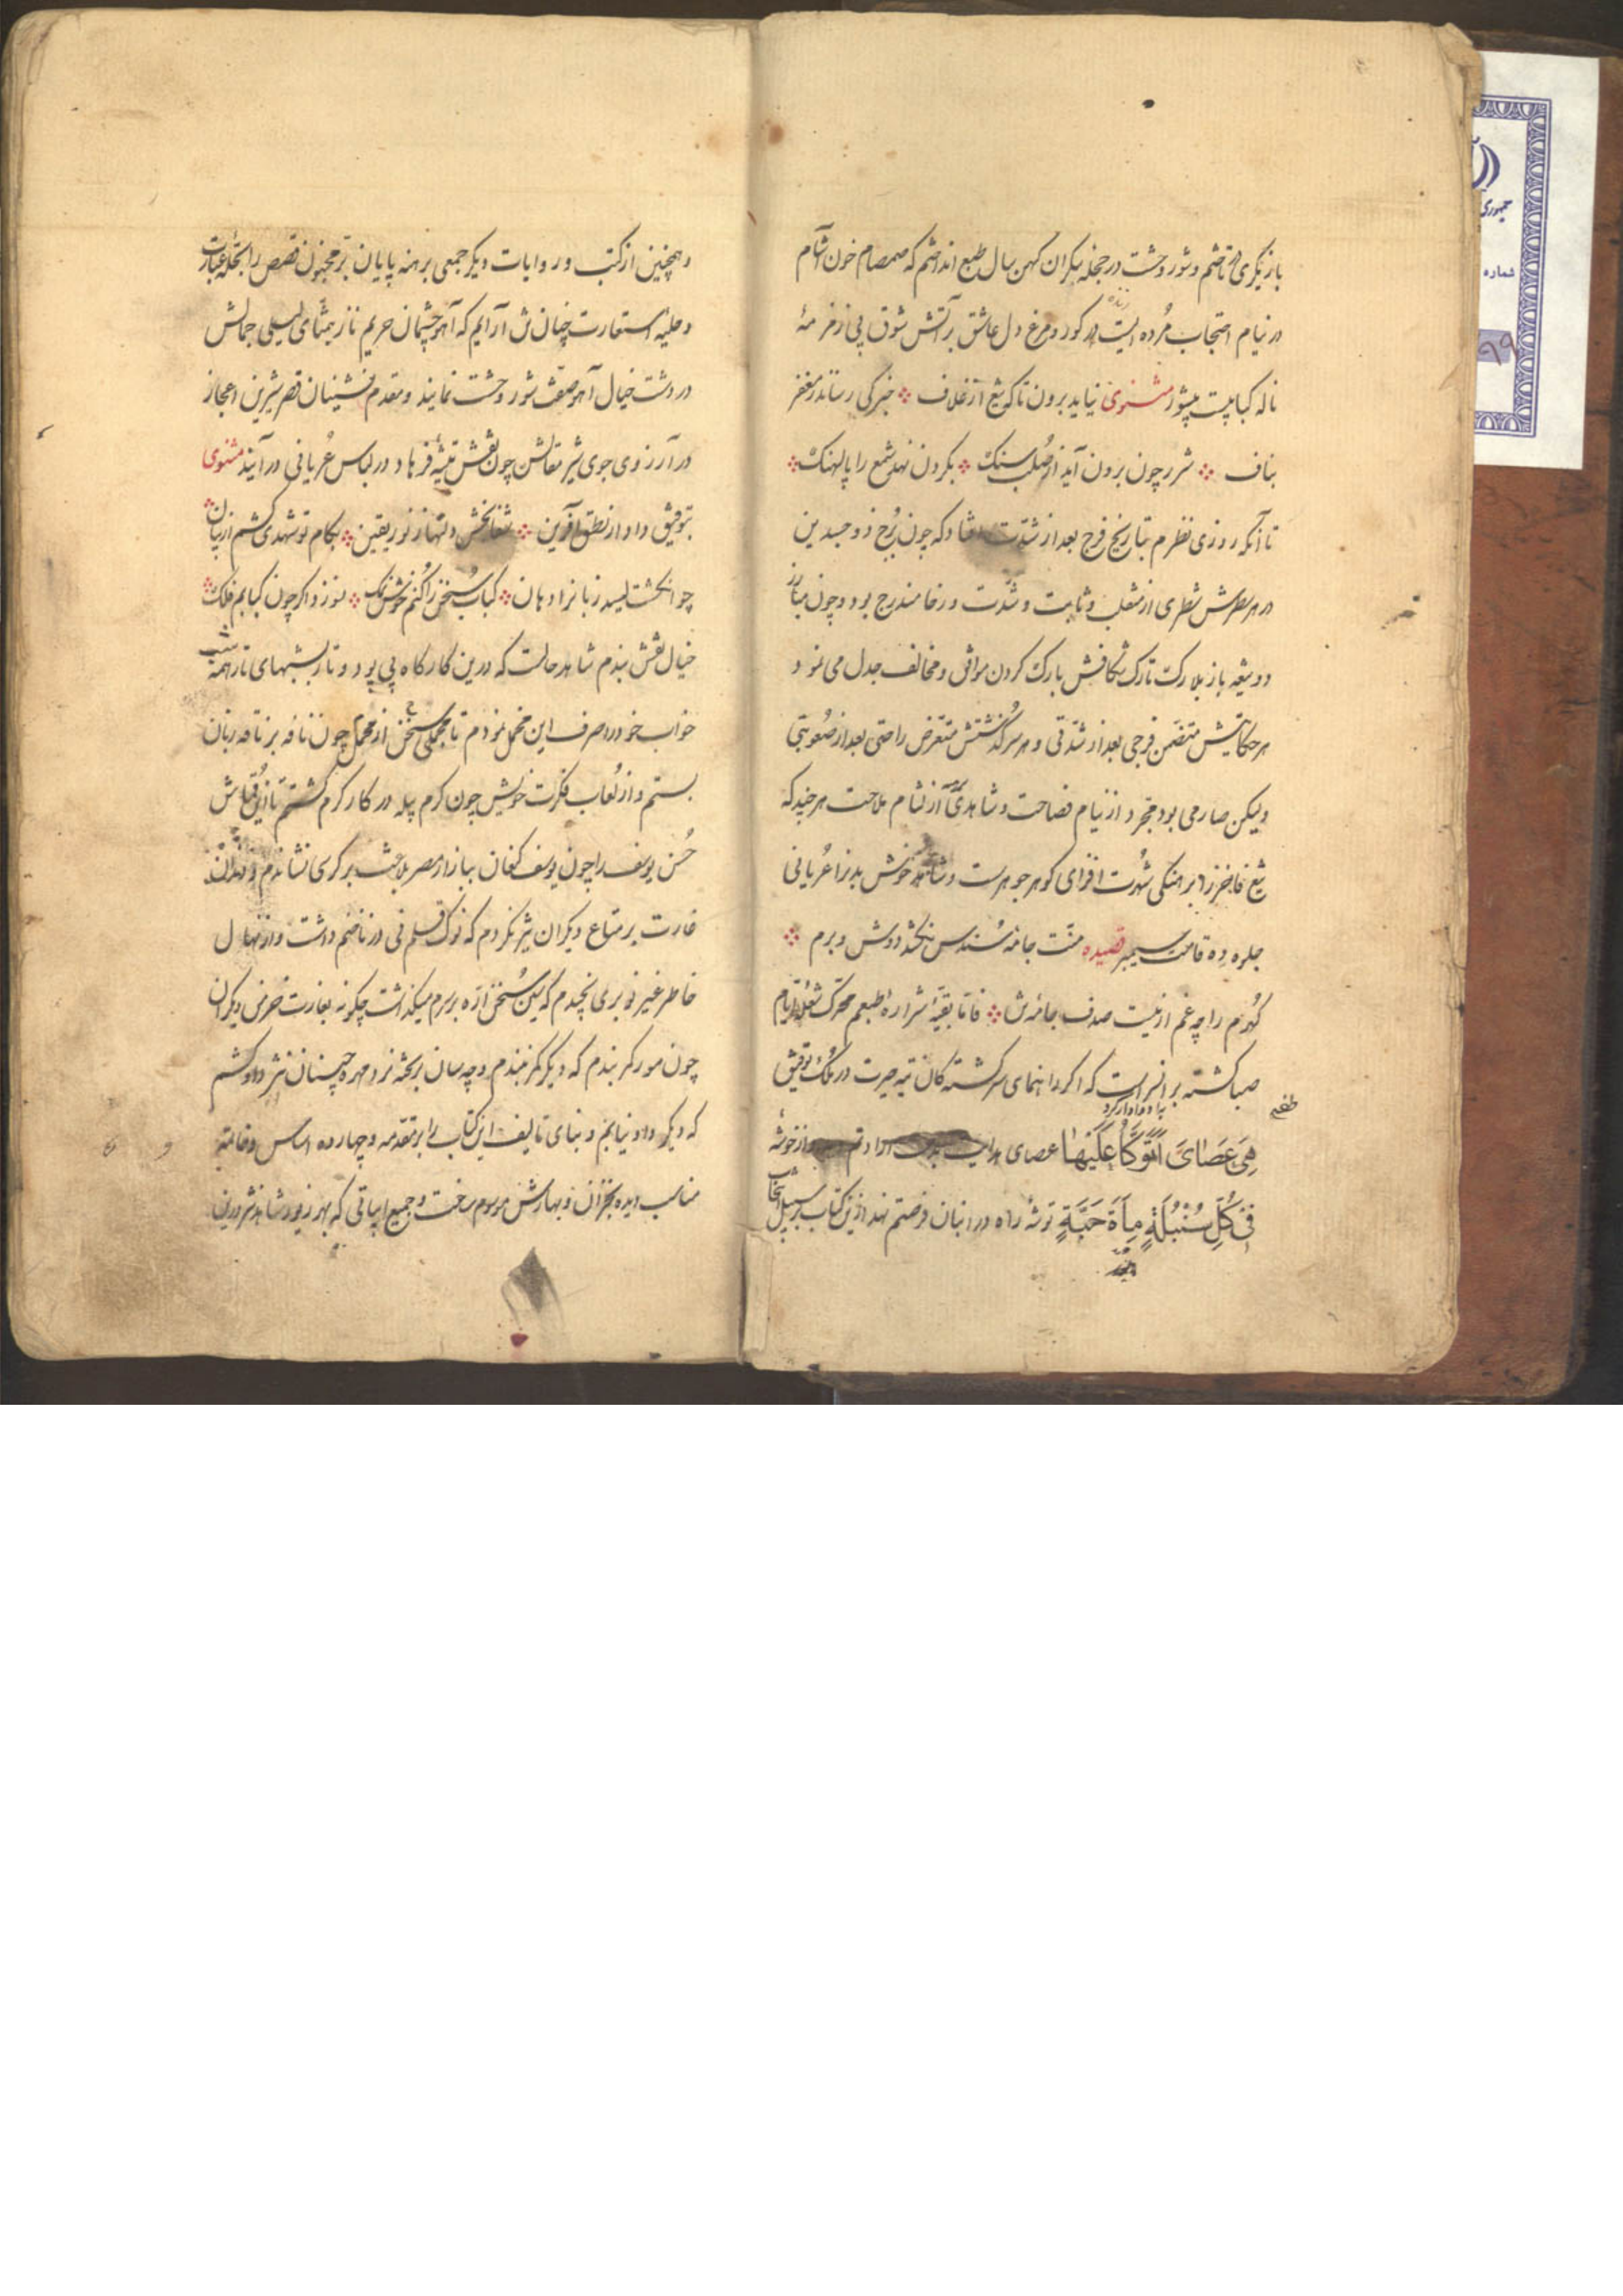 بازیگری در تاختم و شور وحشت در حجله بکران کهن سال طبع انداختم که صمصام خون آشام
در نیام احتجاب مرده ایست در کور و مرغ دل عاشق بر آتش شوق بی زمزمهٔ
ناله کبابیست بیشور مثنوی نیاید برون تا که تیغ از غلاف خبر کی رساند ز مغفر
بناف شرر چون برون آید از صلب سنک بکردون نهد شمع را پالهنک
تا آنکه روزی نظرم بتاریخ فرج بعد از شدت افتاد که چون رخ ذو جسدین
در هر سطرش شطری از منقلب و ثابت و شدت و رخا مندرج بود و چون مبارز
دو تیغه باز بلارک تارک شکافش بارک کردن موافق و مخالف جدل می نمود
هر حکایتش متضمن فرجی بعد از شدتی و هر سرکذشتش متعرض راحتی بعد از صعوبتی
ولیکن صارمی بود مجرد از نیام فصاحت و شاهدی از لثام ملاحت هر چند که
تیغ فاخر را برهنکی شهرت افزای کوهر جوهرست و شاهد خوش بدن را عریانی
جلوه ده قامت سیمبر قصیده منت جامه سندس نکشد دوش و برم
کهرم را چه غم از نیست صدف جامه‌ش فاما بقیهٔ شراره طبعم محرک شعله ایام
صبا کشته بر آنسراست که اکر راهنمای سرکشته کان تیه حیرت در ملک توفیق
هِیَ عَصَایَ اَتَوَکَّأُ عَلَیْهَا عصای هدایت بدست ارادتم از خوشهٔ
فِی کُلِّ سُنْبُلَةٍ مِأَةُ حَبَّةٍ توشهٔ راه در انبان فرصتم نهد ازین کتاب بر سبیل انتخاب
و همچنین از کتب و روایات دیکر جمعی برهنه پایان بر مجنون قصص را بحلهٔ عبارت
و حلیه استعارت چنان ش آرایم که آهو چشمان حریم ناز بتمنای لیلی جمالش
در دشت خیال آهو صفت شور وحشت نمایند و مقدم نشینان قصر شیرین اعجاز
در آرزوی جوی شیر مقالش چون نقش تیشه فرهاد در لباس عریانی در آیند مثنوی
بتوفیق دادار نطق آفرین شفابخش دلها ز نور یقین بکام تو شهدی کشم از بیان
چو انکشت لیسد زبانرا دهان کباب سخن را کنم خوش نمک نسوزد اکر چون کبابم فلک
خیال نقش بندم شاهد حالت که درین کارکاه پی پود و تار بشبهای تار همه شب
خواب خود را صرف این مخمل نمودم تا محملی سخن از مجمل چون نافه بر ناقه زبان
بستم و از لعاب فکرت خویش چون کرم پیله در کار کرم کشتم تا ازین قماش
حسن یوسف را چون یوسف کنعان ببازار مصر بلاغت بر کرسی نشاندم و دندان
غارت بر متاع دیکران تیز نکردم که نوک قلم نی در ناخنم داشت و از نهال
خاطر غیر نوبری نچیدم که سین سخن اره بر سرم میکذاشت چکونه بغارت خرمن دیکران
چون مور کمر بندم که دیکر کمر نبندم و چه سان بر تخته نرد مهره چینستان نثر داو کشم
که دیکر داو نیابم و بنای تالیف این کتاب را بر مقدمه و چهارده اساس و خاتمهٔ
مناسب دیده بخزان و بهارش موسوم ساخت و جمیع ابیاتی که بهر زیور شاهد نثر درین